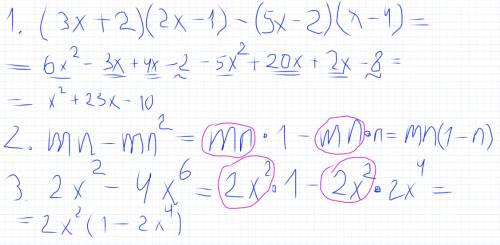 1. (3x+2)(2x-1)-(5x-2)(x-4)=
= 6x²-3x+4x-2-5x²+20x+2x-8=
= x²+23x-10
2. mn-mn²=mn·1-mn·n=mn(1-n)
3. 2x²-4x⁶=2x²·1-2x²·2x⁴=
=2x²(1-2x⁴)